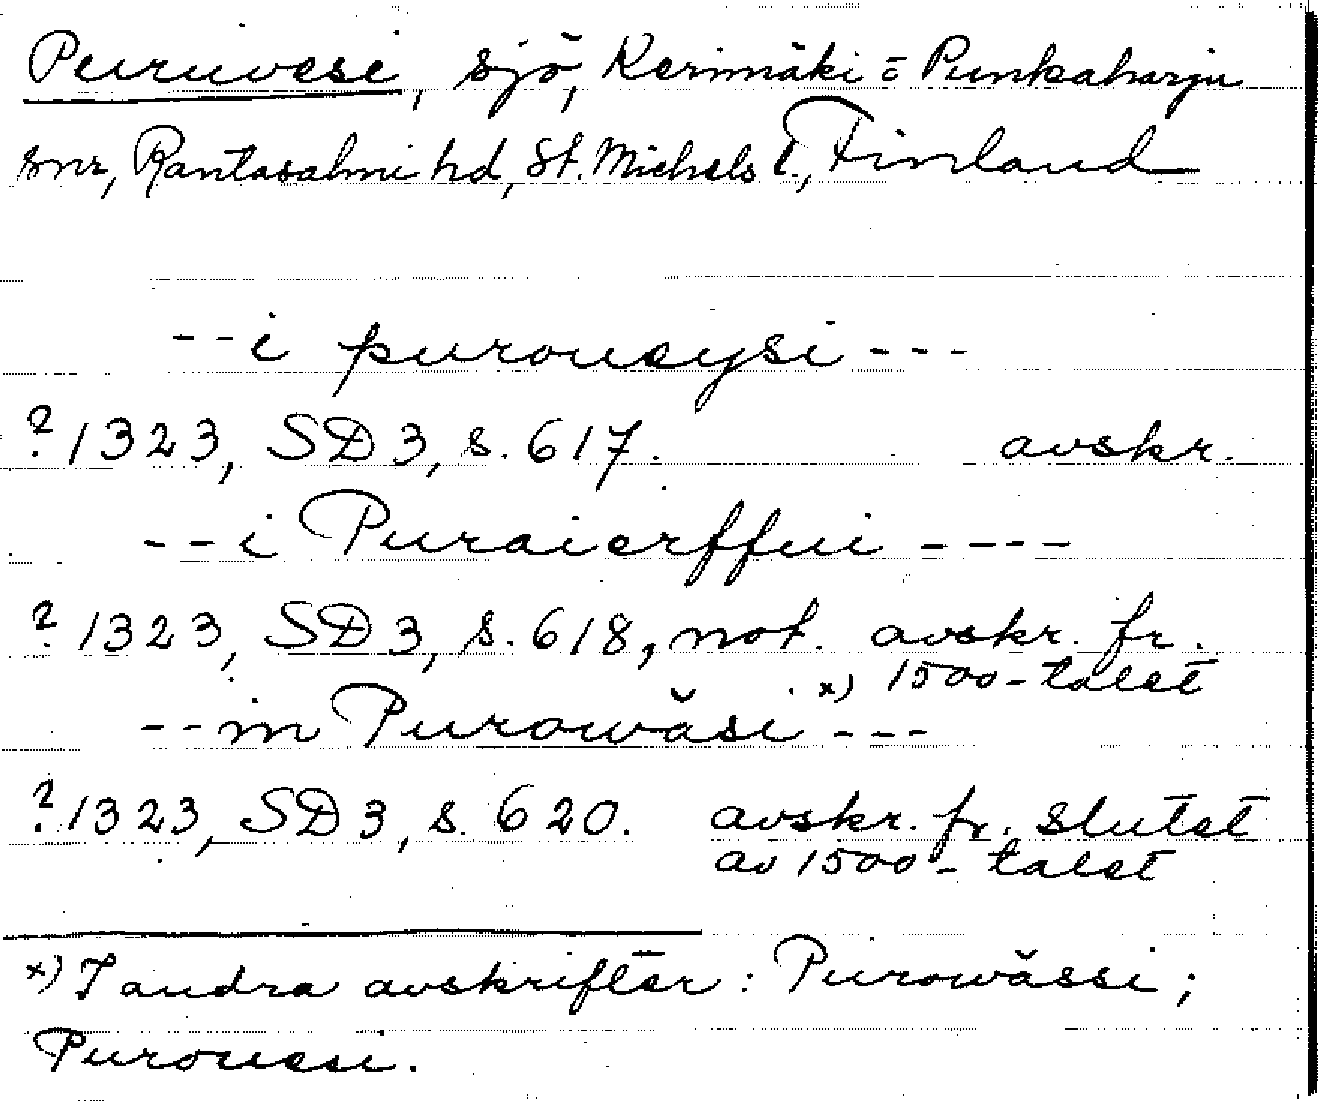 Puruvesi, sjö, Kerimäki = Punkaharju
snr, Rantasalmi hd, St. Michels l., Finland
--i puroueysi---
? 1323, SD 3, s. 617. avskr.
--i Puraierffui----
? 1323, SD 3, s. 618, not. avskr. fr.
x) 1500-talet
--in Purowäsi---
? 1323, SD 3, s. 620. avskr. fr. slutet
av 1500-talet
x) I andra avskrifter: Purowässi;
Purouesi.